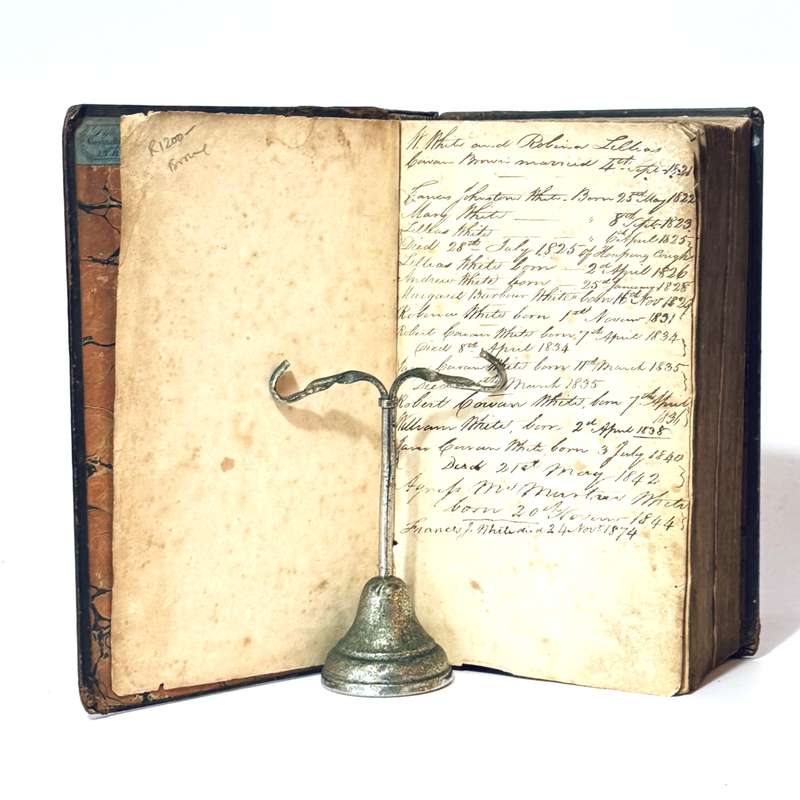 R1200-
W. White and Robina Lillias
Cowan Brown married 4th Sept 1821
Johnston White. Born 25th May 1822
Mary White — " 8th Sept 1823
Lillias White — " 6th April 1825
Died 28th July 1825 of Hooping Cough
Lillias White born — 2nd April 1826
Andrew White born — 25th January 1828
Margaret Barbour White born 16th Nov
Robina White born 1st Novemr 1831
Robert Cowan White born 7th April 1834
Died 8th April 1834
Cowan White born 11th March 1835
March 1835
Robert Cowan White, born 7th April
1836
William White, born 2nd April 1838
Cowan White born 3 July 1840
Died 21st May 1842
Agness Mc White
born 20th Novemr 1844
Frances J. White died 24 Novr 1874